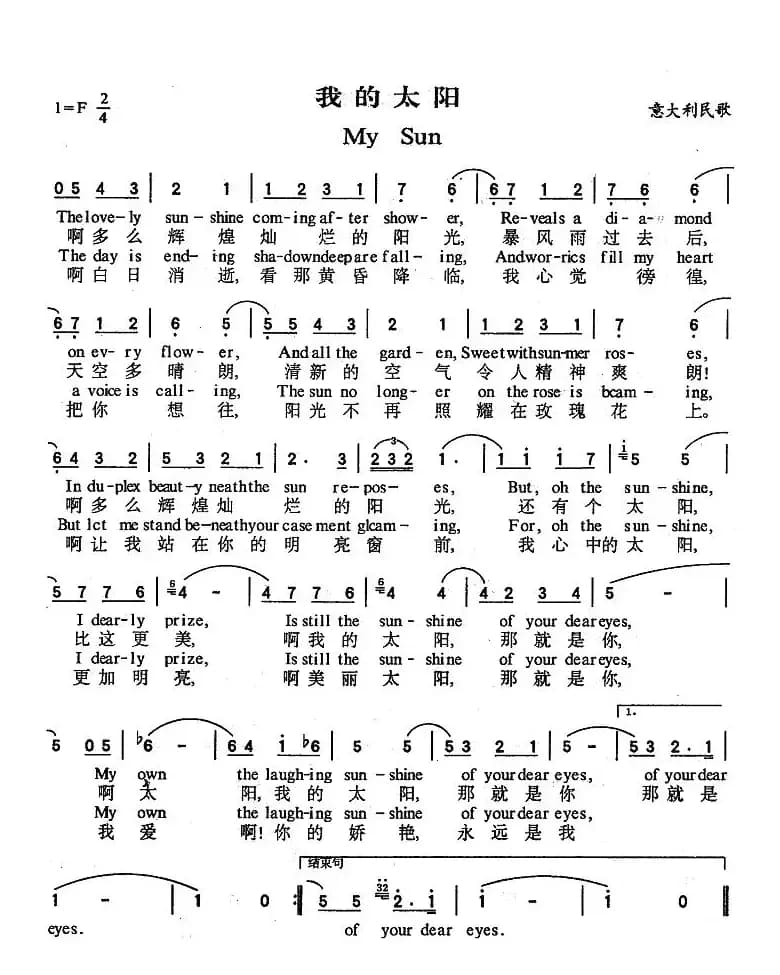 我的太阳
1=F 2/4
意大利民歌
My Sun
0 5 4 3 | 2 1 | 1 2 3 1 | 7 6 | 6 7 1 2 | 7 6 6 |
The love-ly sun-shine coming af-ter show-er, Re-veals a di-a-mond
啊多么辉煌灿烂的阳光,暴风雨过去后,
The day is end-ing sha-downdeepare fall-ing, Andwor-rics fill my heart
啊白日消逝,看那黄昏降临,我心觉徬徨,
6 7 1 2 | 6 5 | 5 5 4 3 | 2 1 | 1 2 3 1 | 7 6 |
on ev-ry flow-er, And all the gard-en, Sweet withsun-mer ros-es,
天空多晴朗,清新的空气令人精神爽朗!
a voice is call-ing, The sun no long-er on the rose is bcam-ing,
把你想往,阳光不再照耀在玫瑰花上。
6 4 3 2 | 5 3 2 1 | 2. 3 | 3 2 3 2 | 1. | 1 1 1 7 | i 5 5 |
In du-plex beaut-y neaththe sun re-pos-es, But, oh the sun-shine,
啊多么辉煌灿烂的阳光,还有个太阳,
But lct me stand be-neathyour case ment glcam-ing, For, oh the sun-shine,
啊让我站在你的明亮窗前,我心中的太阳,
5 7 7 6 | 6 4 - | 4 7 7 6 | 6 4 4 | 4 2 3 4 | 5 - |
I dear-ly prize, Is still the sun-shine of your dear eyes,
比这更美,啊我的太阳,那就是你,
I dear-ly prize, Is still the sun-shine of your dear eyes,
更加明亮,啊美丽太阳,那就是你,
1.
5 0 5 | ♭6 - | 6 4 i ♭6 | 5 5 | 5 3 2 1 | 5 - | 5 3 2. 1 |
My own the laugh-ing sun-shine of yourdear eyes, of yourdear
啊太阳,我的太阳,那就是你那就是
My own the laugh-ing sun-shine of yourdear eyes,
我爱啊!你的娇艳,永远是我
结束句
1 - | 1 0 :| 5 5 32 2. 1 | 1 - | 1 0 ‖
eyes. of your dear eyes.